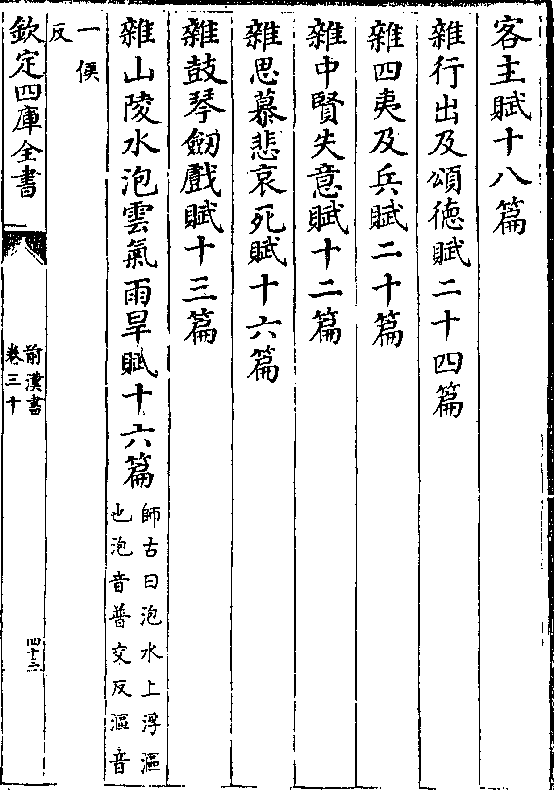 客主賦十八篇
雜行出及頌徳賦二十四篇
雜四夷及兵賦二十篇
雜中賢失意賦十二篇
雜思慕悲哀死賦十六篇
雜鼓琴劒戲賦十三篇
雜山陵水泡雲氣雨旱賦十六篇
師古曰泡水上浮漚
也泡音普交反漚音
一侯
反
欽定四庫全書
前漢書
卷三十
四十二